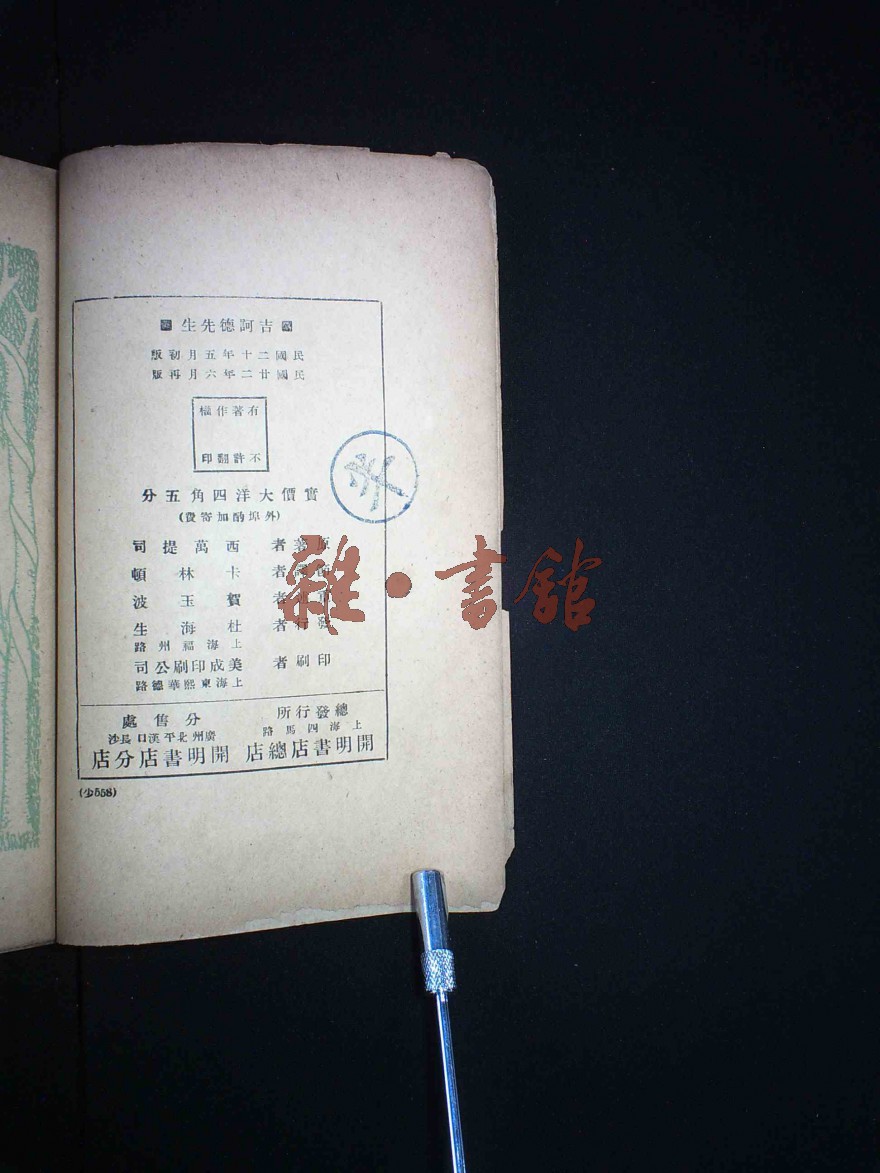 吉訶德先生
民國二十年五月初版
民國廿二年六月再版
有著作權
不許翻印
實價大洋四角五分
(外埠酌加寄費)
原著者 西萬提司
者 卡林頓
者 賀玉波
發行者 杜海生
上海福州路
印刷者 美成印刷公司
上海東熙華德路
總發行所
上海四馬路
開明書店總店
分售處
廣州北平漢口長沙
開明書店分店
(少558)
雜·書館